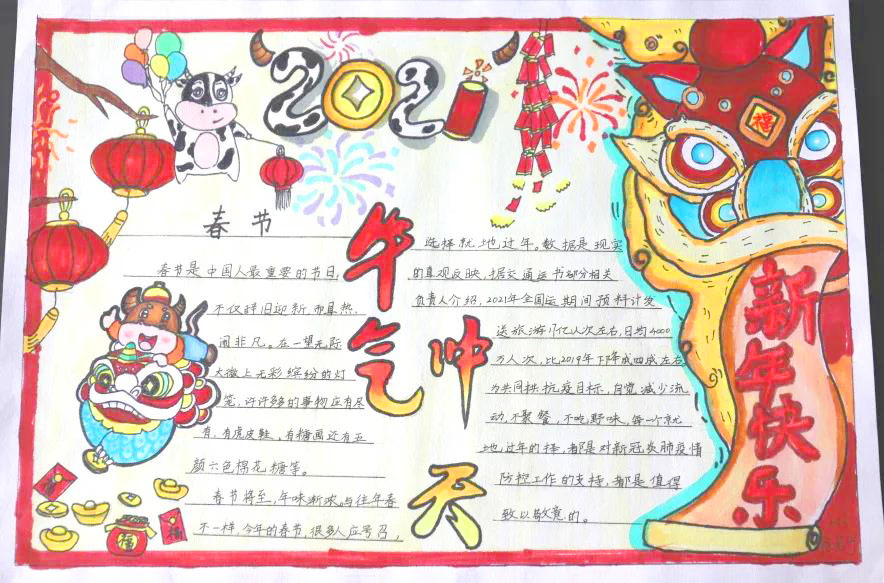 2021
福
新年快乐
牛气冲天
春节
春节是中国人最重要的节日,
不仅辞旧迎新,而且热
闹非凡。在一望无际
大街上无彩缤纷的灯
笼,许许多多的事物应有尽
有,有虎皮鞋,有糖画还有五
颜六色棉花糖等。
春节将至,年味渐浓。与往年春
不一样,今年的春节,很多人应号召,
选择就地过年。数据是现实
的直观反映,据交通运书部分相关
负责人介绍,2021年全国运期间预料计发
送旅游17亿人次左右,日均4000
万人次,比2019年下降成四成左右
为共同抗疫目标,自觉减少流
动,不聚餐,不吃野味,每一个就
地过年的择,都是对新冠炎肺疫情
防控工作的支持,都是值得
致以敬意的。
福
福